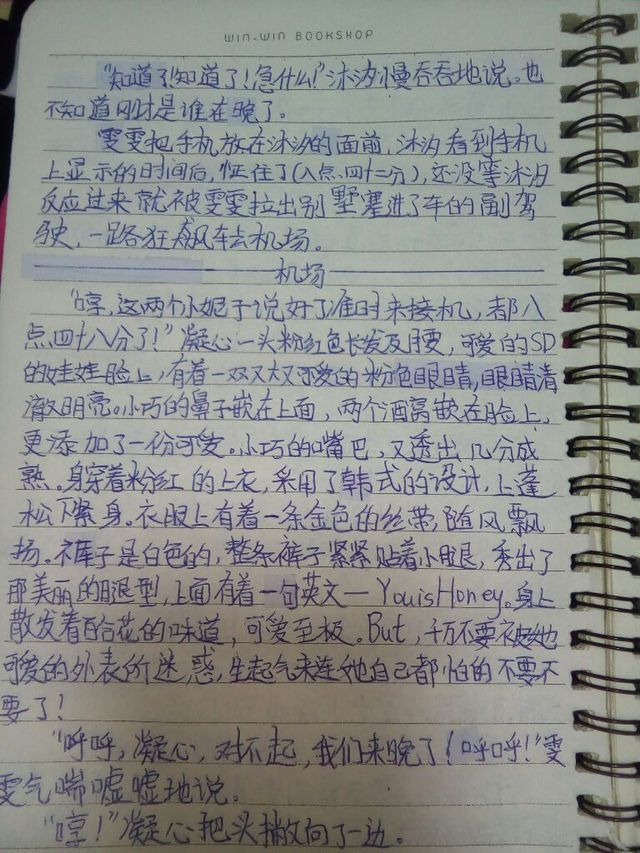 WIN-WIN BOOKSHOP
“知道了!知道了!急什么!”沐汐慢吞吞地说。也
不知道刚才是谁在晚了。
雯雯把手机放在沐汐的面前,沐汐看到手机
上显示的时间后,怔住了(八点四十二分),还没等沐汐
反应过来就被雯雯拉出别墅塞进了车的副驾
驶,一路狂飙车去机场。
机场
“哼,这两个小妮子说好了准时来接机,都八
点四十八分了!”凝心一头粉红色长发及腰,可爱的SD
的娃娃脸上,有着一双又大又可爱的粉色眼睛,眼睛清
澈明亮。小巧的鼻子嵌在上面,两个酒窝嵌在脸上,
更添加了一份可爱。小巧的嘴巴,又透出几分成
熟。身穿着粉红的上衣,采用了韩式的设计,上蓬
松下紧身。衣服上有着一条金色的丝带,随风飘
扬。裤子是白色的,整条裤子紧紧贴着小腿,秀出了
那美丽的腿型,上面有着一句英文—YouisHoney。身上
散发着百合花的味道,可爱至极。But,千万不要被她
可爱的外表所迷惑,生起气来连她自己都怕的不要不
要了!
“呼呼,凝心,对不起,我们来晚了!呼呼!”雯
雯气喘嘘嘘地说。
“哼!”凝心把头撇向了一边。